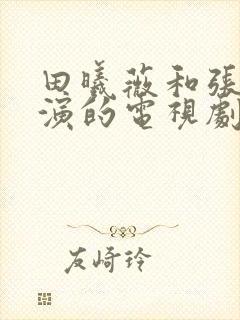 田曦薇和張
演的電視劇
友崎玲